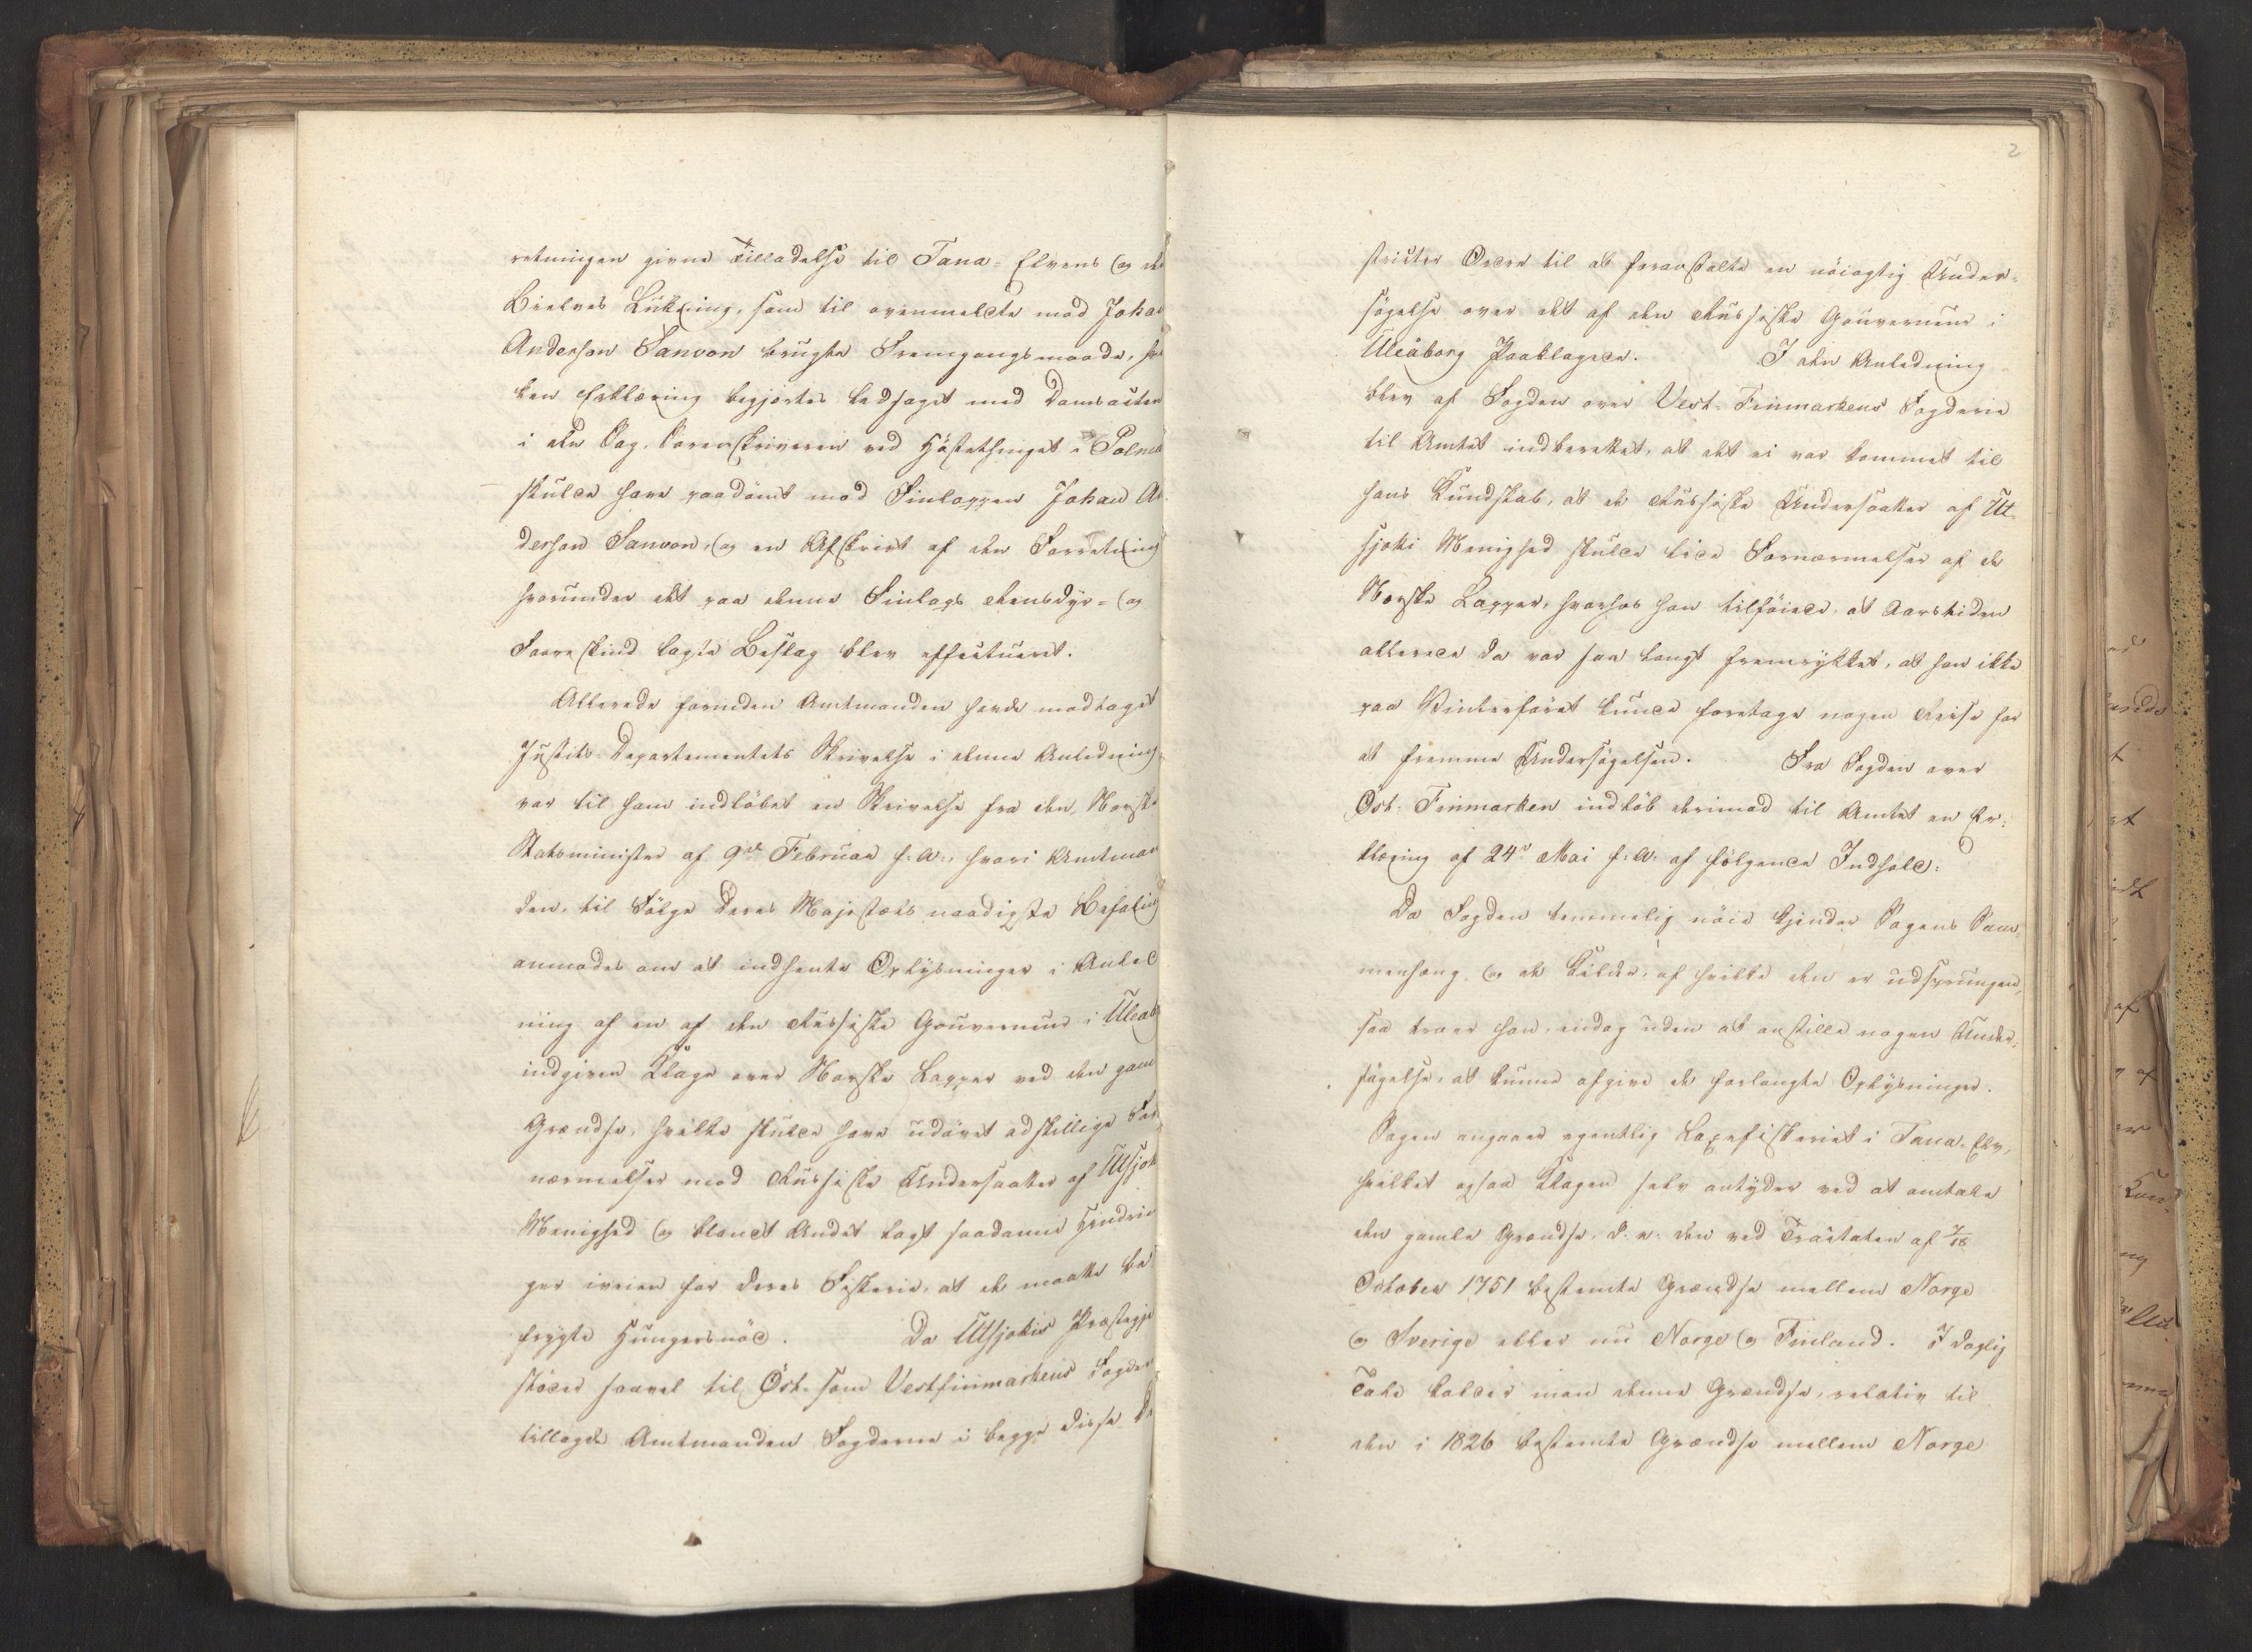 retningen givne Tilladelse til Tana-Elvens og de
Bielves Lukning, som til ovenmeldte mod Johan
Anderson Sanvon brugte Fremgangsmaade, hvil
ken Erklæring begjertes ledsaget med Domsacten
i den Sag, Sorenskriveren ved Høstethinget i Polmak
skulde have paadømt mod Finlappen Johan An
derson Sanvon, og en Afskrivt af den Forretning
hvorunder det paa denne Finlaps Rensdyr- og
Faareskind lagte Beslag blev effectueret.
Allerede forinden Amtmanden havde modtaget
Justits-Departementets Skrivelse i denne Anledning,
var til ham indløbet en Skrivelse fra den Norske
Statsminister af 9de Februar f. A., hvori Amtman
den, til Følge Deres Majestæts naadigste Befaling
anmodes om at indhente Oplysninger i Anled
ning af en af den Russiske Gouverneur i Uleåb
indgiven Klage over Norske Lapper ved den gaml
Grændse, hvilke skulde have udøvet adskillige For
nærmelser mod Russiske Undersaatter af Utsjok
Menighed og blandt Andet lagt saadanne Hindrin
ger iveien for deres Fiskerie, at de maatte be
frygte Hungersnød. Da Utsjokis Præstegje
støder saavel til Öst- som Vestfinmarkens Fogder
tillagde Amtmanden Fogderne i begge disse Di
2
stricter Ordre til at foranstalte en nöiagtig Under-
søgelse over det af den Russiske Gouverneur i
Uleåborg Paaklagede. I den Anledning
blev af Fogden over Vest-Finmarkens Fogderie
til Amtet indberettet, at det ei var kommet til
hans Kundskab, at de Russiske Undersaatter af Ut-
sjoki Menighed skulde lide Fornærmelser af de
Norske Lapper, hvorhos han tilføiede, at Aarstiden
allerede da var saa langt fremrykket, at han ikke
paa Vinterføret kunde foretage nogen Reise for
at fremme Undersøgelsen. Fra Fogden over
Öst-Finmarken indløb derimod til Amtet en Er-
klæring af 24de Mai f. A. af følgende Indhold:
Da Fogden temmelig nöie kjender Sagens Sam
menhæng og de Kilder, af hvilke den er udsprungen,
saa troer han, endog uden at anstille nogen Under-
søgelse, at kunne afgive de forlangte Oplysninger.
Sagen angaaer egentlig Laxefiskeriet i Tana-Elv,
hvilket ogsaa Klagen selv antyder ved at omtale
den gamle Grændse, d. e. den ved Tractaten af 7/18
October 1751 bestemte Grændse mellem Norge
og Sverige eller nu Norge og Finland. I daglig
Tale kalder man denne Grændse, relativ til
den i 1826 bestemte Grændse mellem Norge